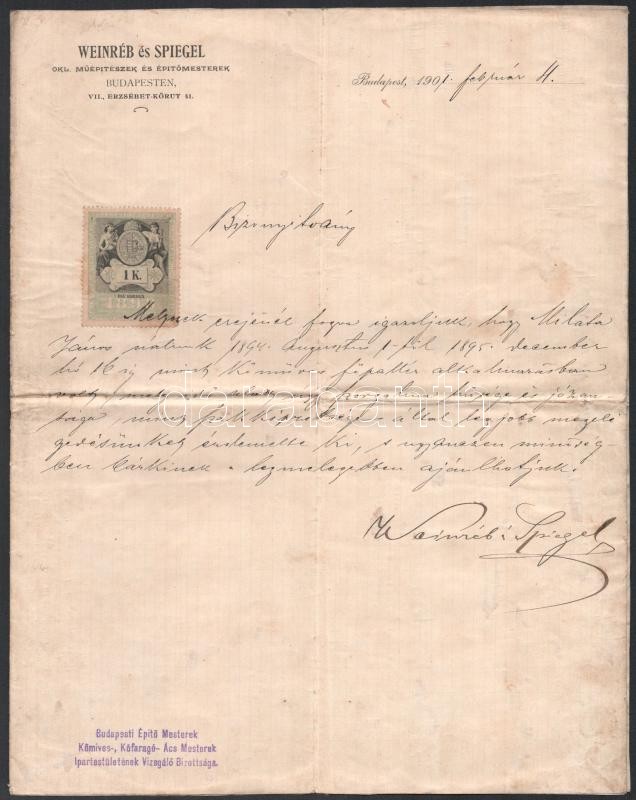 WEINRÉB és SPIEGEL
OKL. MŰÉPITÉSZEK ÉS ÉPITŐMESTEREK
BUDAPESTEN,
VII., ERZSÉBET-KÖRUT 51.
Budapest, 1901. február 4.
Bizonyitvány
1 K.
Melynek erejénél fogva igazoljuk, hogy Miláta
János nálunk 1894. augustus 1-től 1895. december
hó 16 ig mint kőműves főpallér alkalmazásban
volt, mely idő alatt szorgalma hűsége és józan
sága, mint szakképzettsége által legjobb megelé
gedésünket érdemelte ki, s ugyanezen minőség-
ben bárkinek a legmelegebben ajánlhatjuk.
Weinréb i Spiegel
darabanth.com
Budapesti Épitő Mesterek
Kőmives-, Kőfaragó- Ács Mesterek
Ipartestületének Vizsgáló Bizottsága.